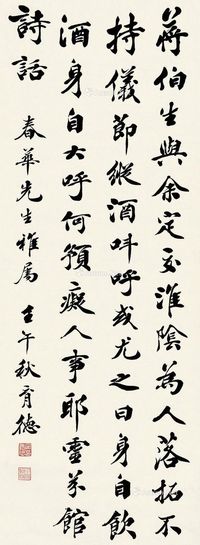 蔣伯生與余定交淮陰為人落拓不
持儀節縱酒叫呼或尤之曰身自飲
酒身自大呼何預癡人事耶靈芬館
詩話
春華先生雅属 壬午秋育德